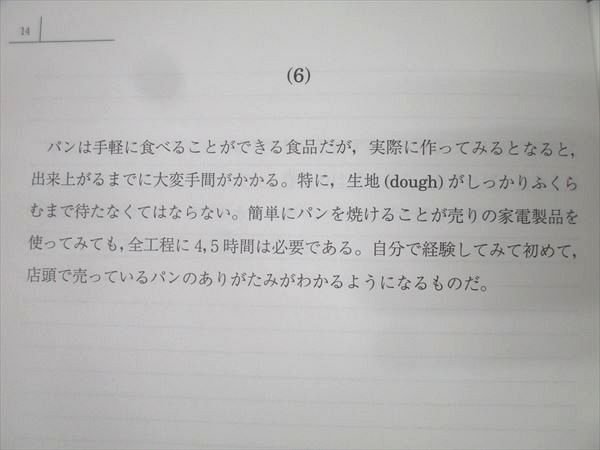 14
(6)
パンは手軽に食べることができる食品だが，実際に作ってみるとなると，
出来上がるまでに大変手間がかかる。特に，生地(dough)がしっかりふくら
むまで待たなくてはならない。簡単にパンを焼けることが売りの家電製品を
使ってみても，全工程に4,5時間は必要である。自分で経験してみて初めて，
店頭で売っているパンのありがたみがわかるようになるものだ。